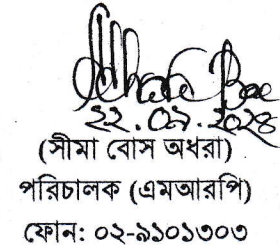 ২২.০৯.২০২৪
(সীমা বোস অধরা)
পরিচালক (এমআরপি)
ফোন: ০২-৯১০১৩০৩